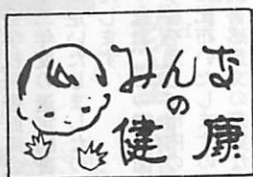 みんなの
健康